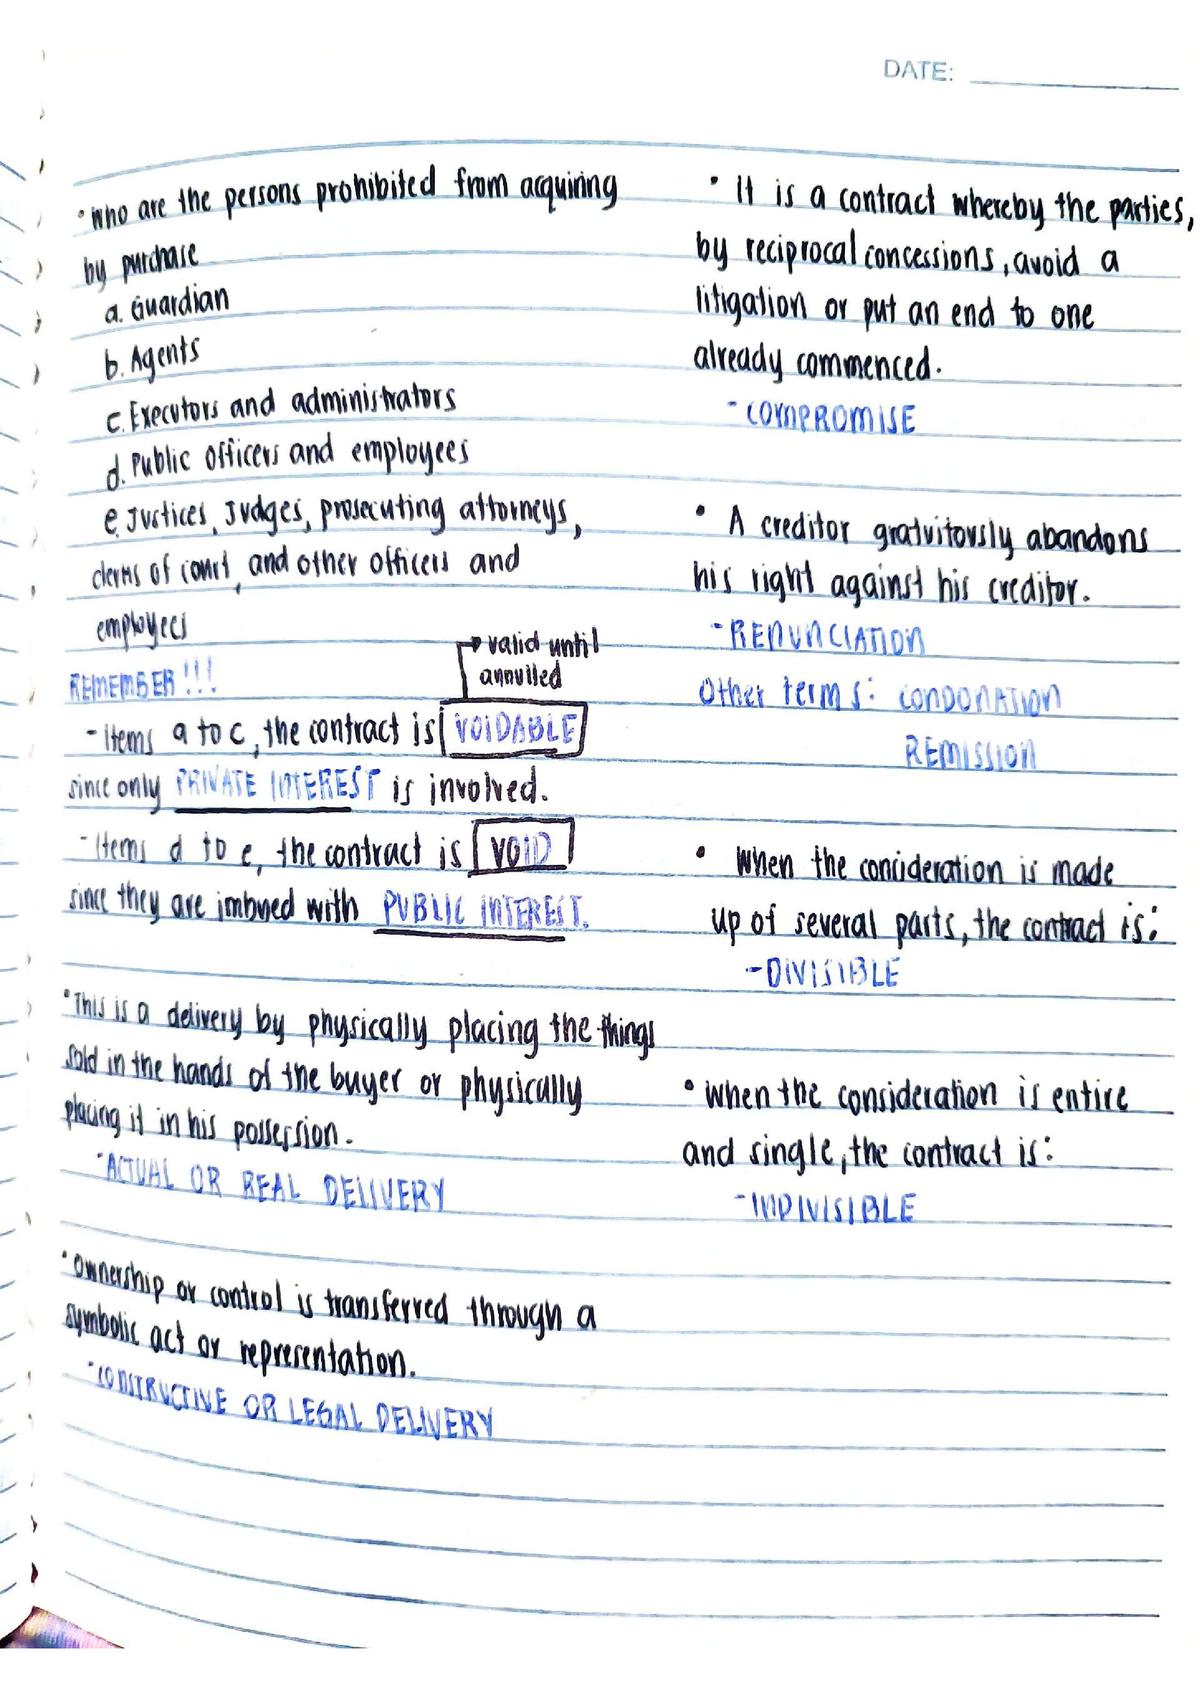 DATE:
• Who are the persons prohibited from acquiring
by purchase
a. Guardian
b. Agents
c. Executors and administrators
d. Public officers and employees
e. Justices, Judges, prosecuting attorneys,
clerks of court, and other officers and
employees
REMEMBER!!!
→ valid until
annulled
- Items a to c, the contract is VOIDABLE
since only PRIVATE INTEREST is involved.
- Items d to e, the contract is VOID
since they are imbued with PUBLIC INTEREST.
• This is a delivery by physically placing the things
sold in the hands of the buyer or physically
placing it in his possession.
- ACTUAL OR REAL DELIVERY
• Ownership or control is transferred through a
symbolic act or representation.
- CONSTRUCTIVE OR LEGAL DELIVERY
• It is a contract whereby the parties,
by reciprocal concessions, avoid a
litigation or put an end to one
already commenced.
- COMPROMISE
• A creditor gratuitously abandons
his right against his creditor.
- RENUNCIATION
Other terms: CONDONATION
REMISSION
• When the consideration is made
up of several parts, the contract is:
- DIVISIBLE
• When the consideration is entire
and single, the contract is:
- INDIVISIBLE